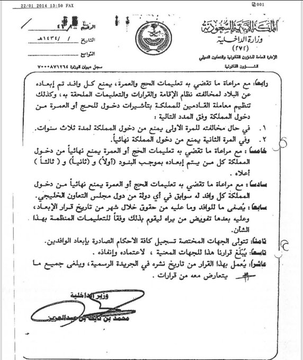 22/01/2014 13:56 FAX
001
المملكة العربية السعودية
وزارة الداخلية
(٢٧٢)
الرقم
التاريخ / / ١٤٣٤هـ
التوابع
رابعاً: مع مراعاة ما تقضي به تعليمات الحج والعمرة، يمنع كل وافد تم إبعاده
عن البلاد لمخالفته نظام الإقامة والقرارات والتعليمات الملحقة به، وكذلك
تنظيم معاملة القادمين للمملكة بتأشيرات دخول للحج أو العمرة من
دخول المملكة وفق المدد التالية:
١- في حال مخالفته للمرة الأولى يمنع من دخول المملكة لمدة ثلاث سنوات.
٢- وفي المرة الثانية يمنع من دخول المملكة نهائياً.
خامساً: مع مراعاة ما تقضي به تعليمات الحج أو العمرة يمنع نهائياً من دخول
المملكة كل من يتم إبعاده بموجب البنود (أولاً) و(ثانياً) و(ثالثاً)
أعلاه.
سادساً: مع مراعاة ما تقضي به تعليمات الحج أو العمرة يمنع نهائياً من دخول
المملكة كل وافد له سوابق في أي دولة من دول مجلس التعاون الخليجي.
سابعاً: يُصفى ما للوافد وما عليه من حقوق خلال شهر من تاريخ قرار الإبعاد،
وعليه بعدها تفويض من يراه ليقوم بذلك وفقاً للتعليمات المنظمة بهذا
الشأن.
ثامناً: تتولى الجهات المختصة تسجيل كافة الأحكام الصادرة بإبعاد الوافدين.
تاسعاً: يُبلّغ قرارنا هذا للجهات المعنية، لاعتماده وإنفاذه.
عاشراً: يُعمل بهذا القرار من تاريخ نشره في الجريدة الرسمية، ويلغى جميع ما
يتعارض معه من قرارات.
وزير الداخلية
محمد بن نايف بن عبدالعزيز